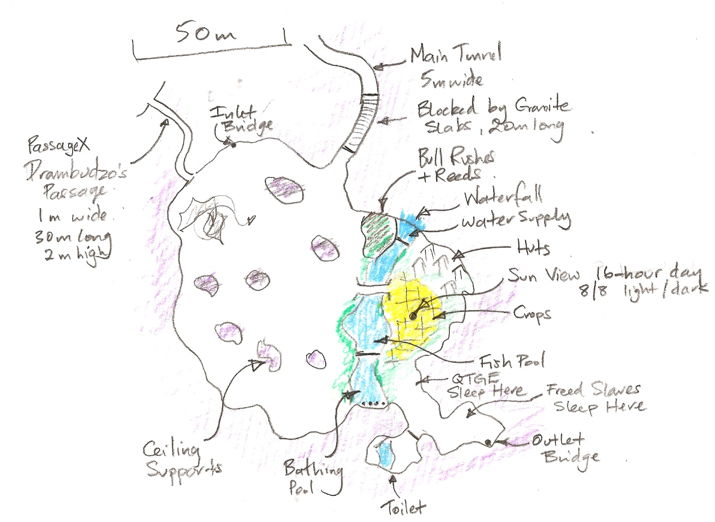 50m
Main Tunnel
5m wide
Blocked by Granite
Slabs, 20m long
Inlet
Bridge
PassageX
Drambudzo's
Passage
1m wide
30m long
2m high
Bull Rushes
+ Reeds
Waterfall
Water Supply
Huts
Sun View 16-hour day
8/8 light/dark
Crops
Fish Pool
QTGE
Sleep Here
Freed Slaves
Sleep Here
Outlet
Bridge
Ceiling
Supports
Bathing
Pool
Toilet